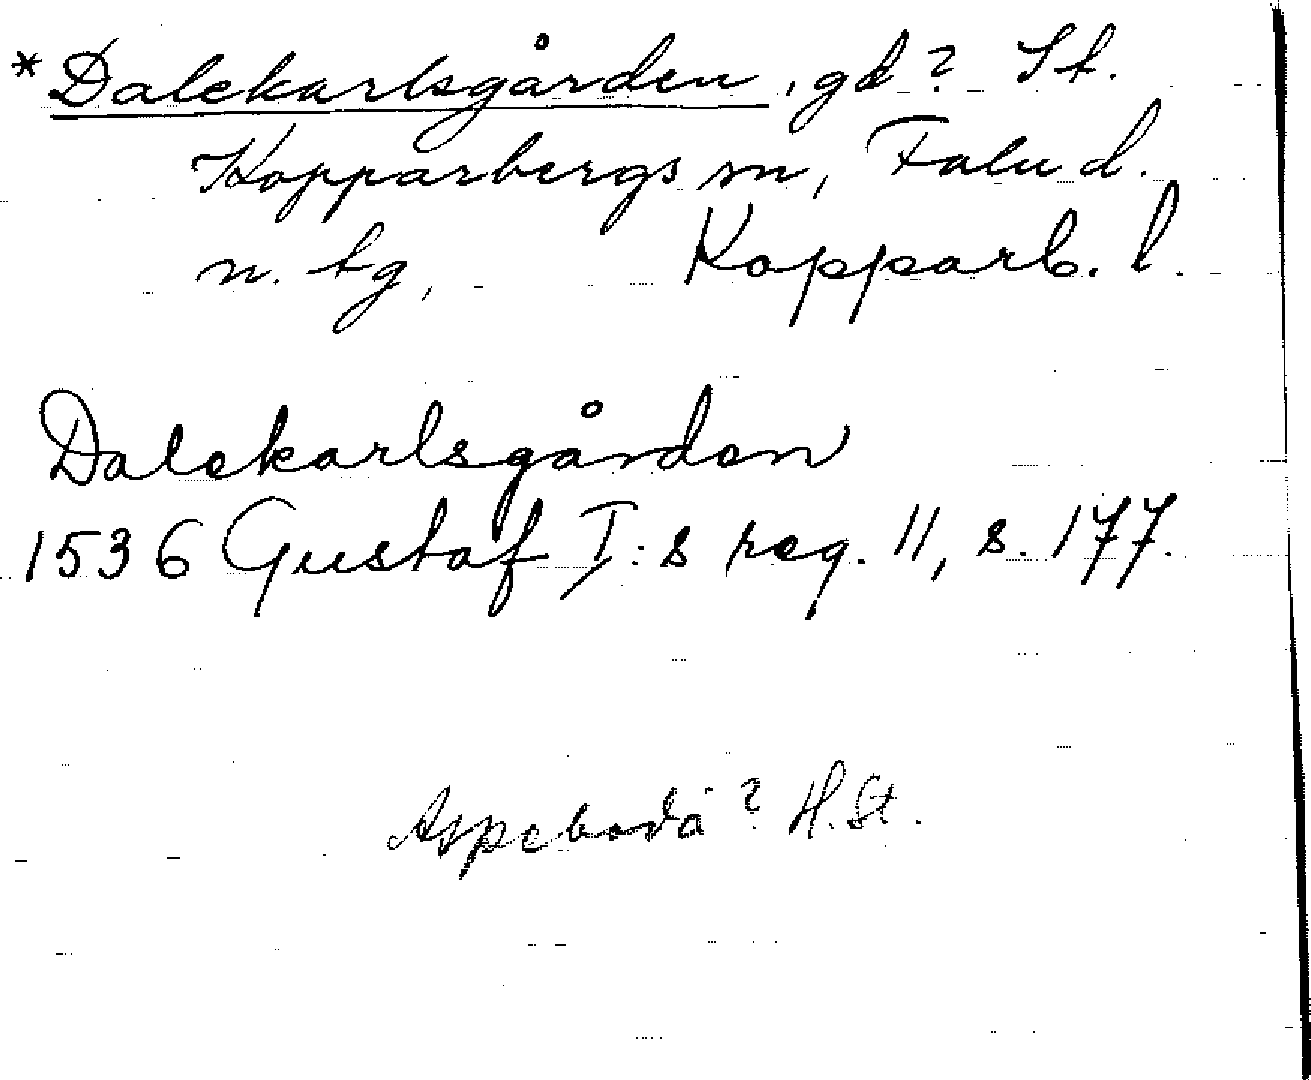 *Dalekarlsgården, gd? St.
Kopparbergs sn, Falu d.
n. tg, Kopparb. l.
Dalekarlsgården
1536 Gustaf I:s reg. 11, s. 177.
Aspeboda? H.St.